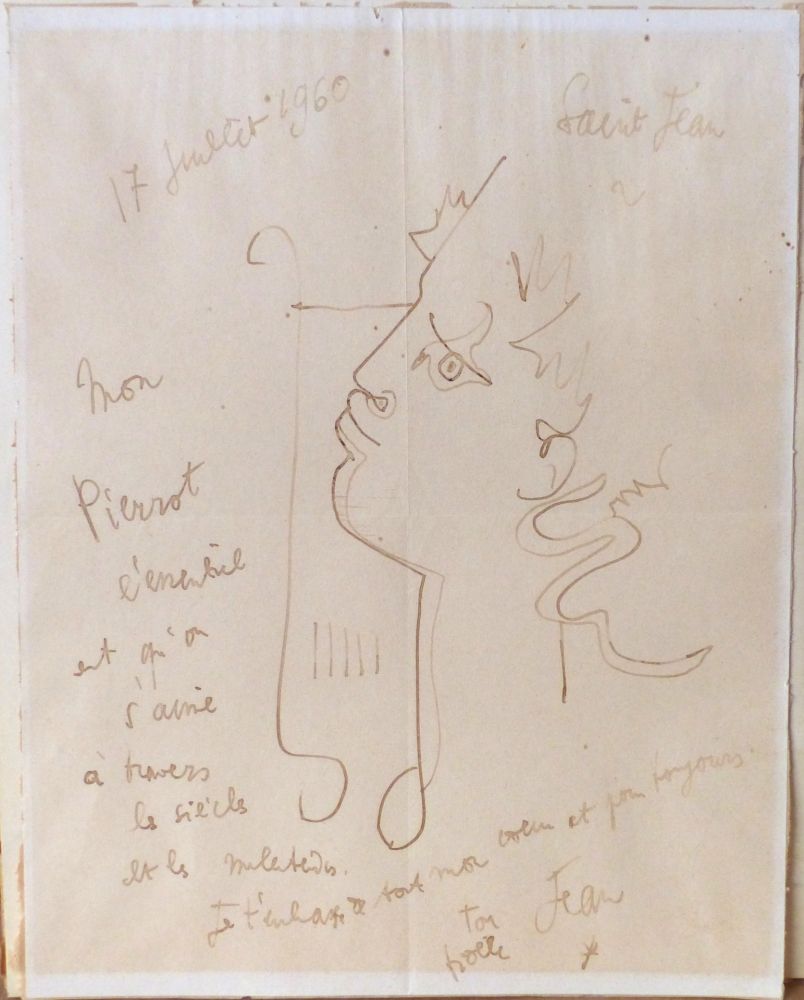 17 Juillet 1960
Saint Jean
Mon
Pierrot
l'essentiel
est qu'on
s'aime
à travers
les siècles
et les malentendus.
Je t'embrasse de tout mon coeur et pour toujours.
Ton Jean
poète